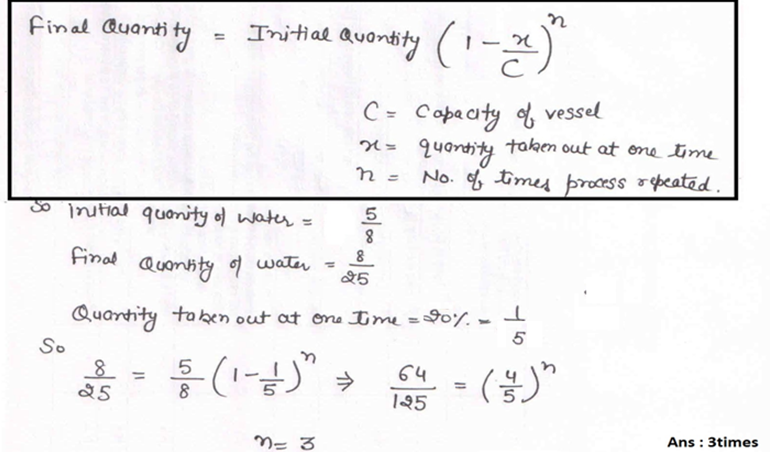 Final Quantity = Initial Quantity (1 - x/C)^n
C = Capacity of vessel
x = quantity taken out at one time
n = No. of times process repeated.
So initial quanity of water = 5/8
final Quantity of water = 8/25
Quantity taken out at one time = 20% = 1/5
So
8/25 = 5/8 (1 - 1/5)^n ⇒ 64/125 = (4/5)^n
n = 3
Ans : 3times